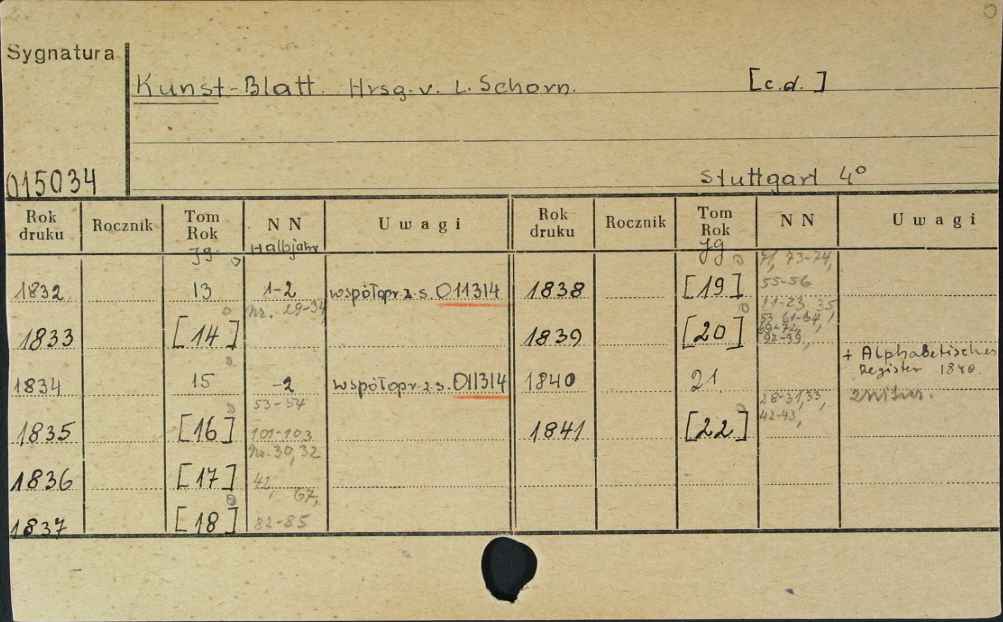 Sygnatura
Kunst-Blatt. Hrsg. v. L. Schorn. [c.d.]
015034
Stuttgart 4°
Rok druku Rocznik Tom Rok NN Uwagi Rok druku Rocznik Tom Rok NN Uwagi
Jg. Halbjahr Jg
71, 73-74,
1832 13 1-2 współopr. z s. 011314 1838 [19] 55-56
nr. 29-34
1833 [14] 1839 [20]
92-99,
+ Alphabetisches
Register 1840.
1834 15 -2 współopr. z s. 011314 1840 21.
53-54 28-31, 33,
42-43,
1835 [16] 101-103 1841 [22]
nr. 30, 32
1836 [17] 42,
67,
1837 [18] 82-85